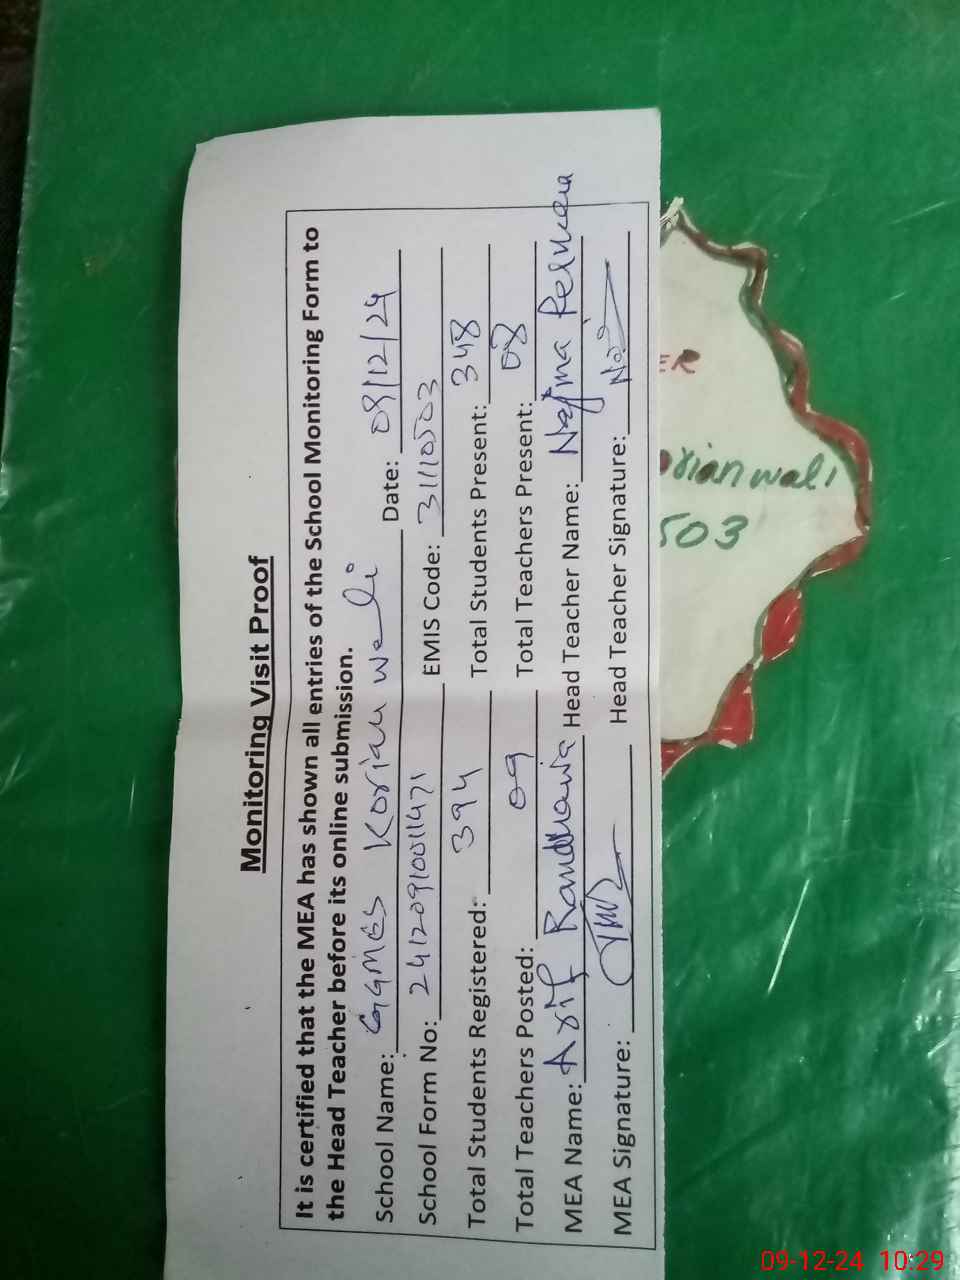 Monitoring Visit Proof
It is certified that the MEA has shown all entries of the School Monitoring Form to
the Head Teacher before its online submission.
School Name: GGMES Korian wali Date: 09/12/24
School Form No: 2412091001471 EMIS Code: 31110503
Total Students Registered: 394 Total Students Present: 348
Total Teachers Posted: 09 Total Teachers Present: 08
MEA Name: Arif Randhawa Head Teacher Name: Najma Perveen
MEA Signature: Head Teacher Signature:
ER
orianwali
503
09-12-24 10:29